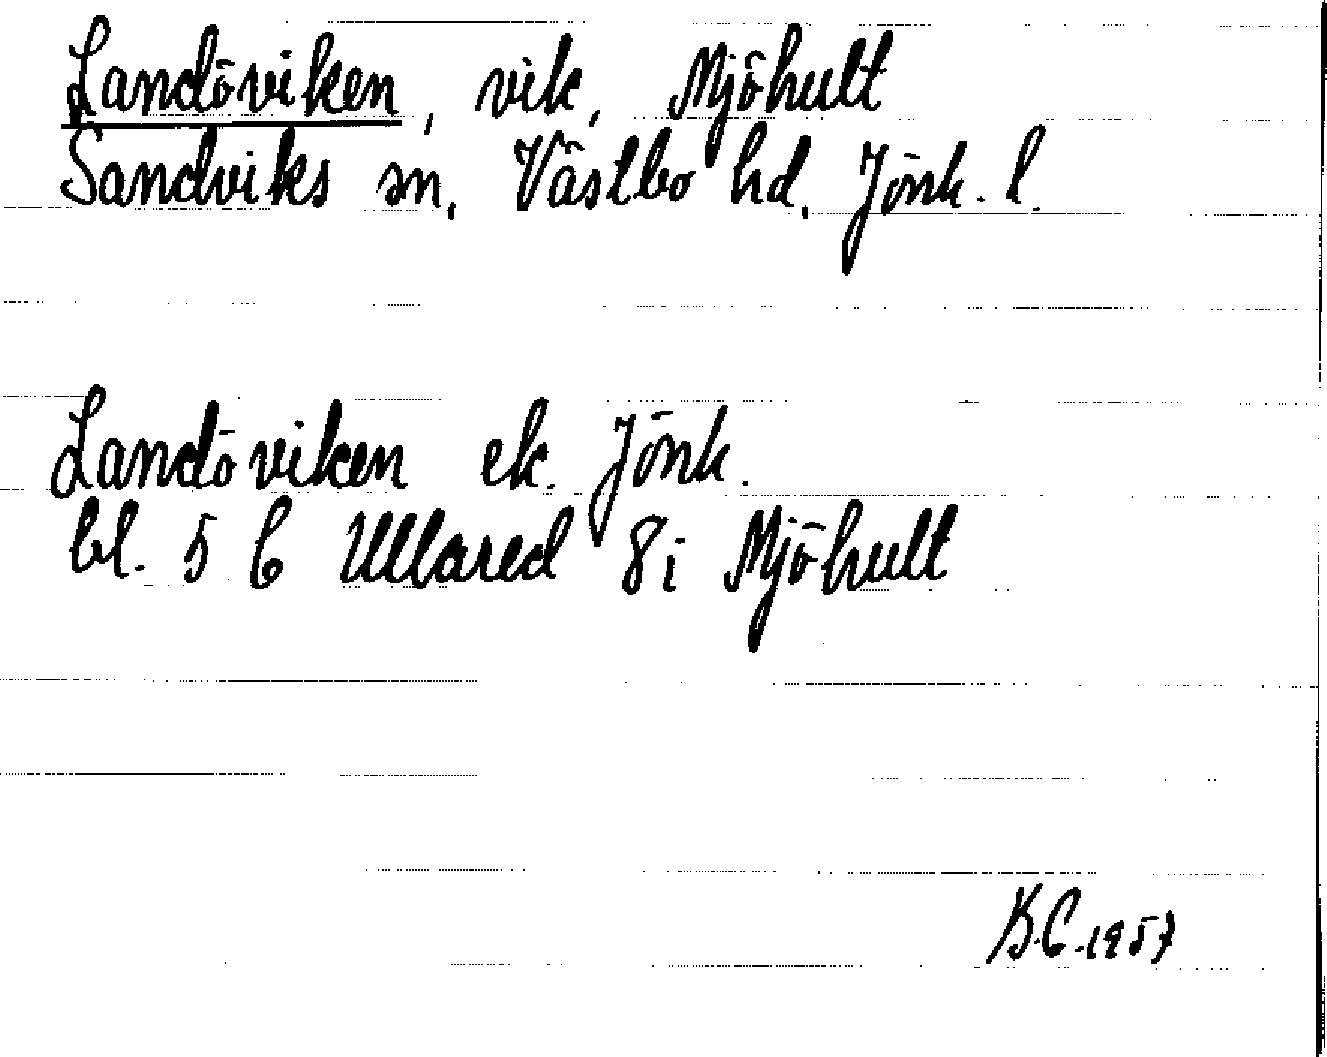 Landöviken, vik, Mjöhult
Sandviks sn, Västbo hd, Jönk. l.
Landöviken ek. Jönk.
bl. 5 C Ullared 8i Mjöhult
K.C. 1957